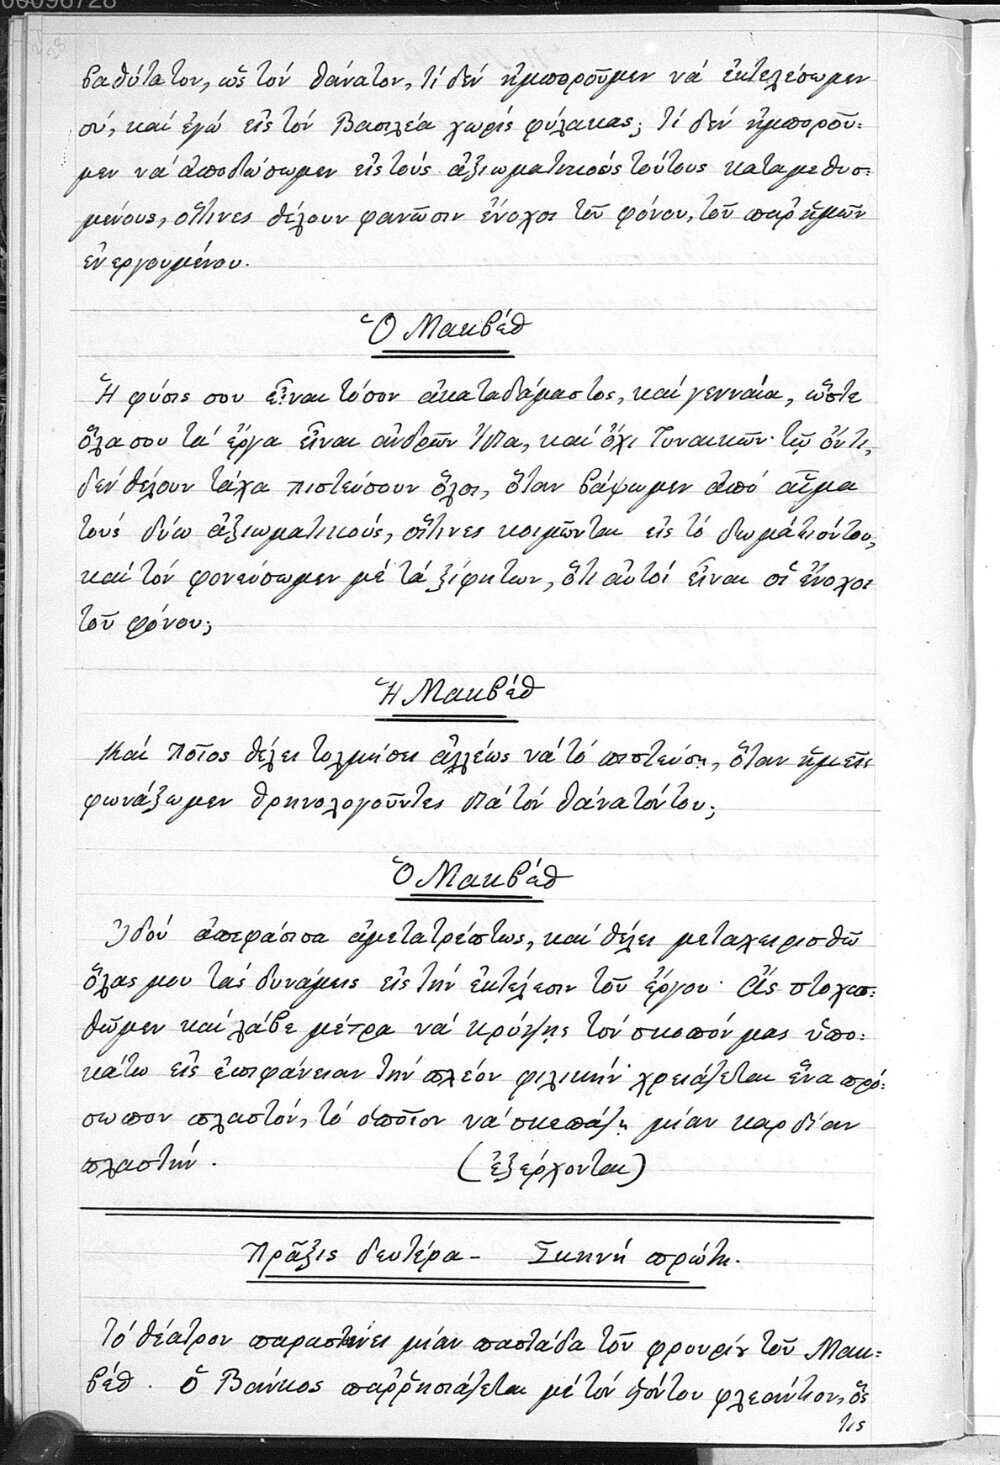 00096728
βαθύτατον, ὡς τὸν θάνατον, τί δέν ἠμποροῦμεν νά ἐκτελέσωμεν
σύ, καί ἐγώ εἰς τόν Βασιλέα χωρίς φύλακας; τί δέν ἠμποροῦ:
μεν νά ἀποδώσωμεν εἰς τούς ἀξιωματικούς τούτους καταμεθυσ:
μένους, οἵτινες θέλουν φανῶσιν ἔνοχοι τοῦ φόνου, τοῦ παρ' ἡμῶν
ἐνεργουμένου.
Ὁ Μακβέθ
Ἡ φύσις σου εἶναι τόσον ἀκαταδάμαστος, καί γενναία, ὥστε
ὅλα σου τά ἔργα εἶναι ἀνδρῶν ἴδια, καί ὄχι γυναικῶν· τῷ ὄντι,
δέν θέλουν τάχα πιστεύσουν ὅλοι, ὅταν βάψωμεν ἀπό αἷμα
τούς δύω ἀξιωματικούς, οἵτινες κοιμῶνται εἰς τό δωμάτιόν του,
καί τόν φονεύσωμεν μέ τά ξίφη των, ὅτι αὐτοί εἶναι οἱ ἔνοχοι
τοῦ φόνου;
Ἡ Μακβέθ
Καί ποῖος θέλει τολμήσει ἀλλέως νά τό πιστεύσῃ, ὅταν ἡμεῖς
φωνάξωμεν θρηνολογοῦντες διά τόν θάνατόν του;
Ὁ Μακβέθ
Ἰδού ἀπεφάσισα ἀμετατρέπτως, καί θέλει μεταχειρισθῶ
ὅλας μου τάς δυνάμεις εἰς τήν ἐκτέλεσιν τοῦ ἔργου· Ἄς στοχασ:
θῶμεν καί λάβε μέτρα νά κρύψῃς τόν σκοπόν μας ὑπο:
κάτω εἰς ἐπιφάνειαν τήν πλέον φιλικήν· χρειάζεται ἕνα πρό:
σωπον πλαστόν, τό ὁποῖον νά σκεπάζῃ μίαν καρδίαν
πλαστήν. (ἐξέρχονται)
Πρᾶξις δευτέρα - Σκηνή πρώτη.
Τό θέατρον παραστένει μίαν παστάδα τοῦ φρουρίου τοῦ Μακ:
βέθ. Ὁ Βάνκος παῤῥησιάζεται μέ τόν υἱόν του φλεάντιον, ὅς
τις